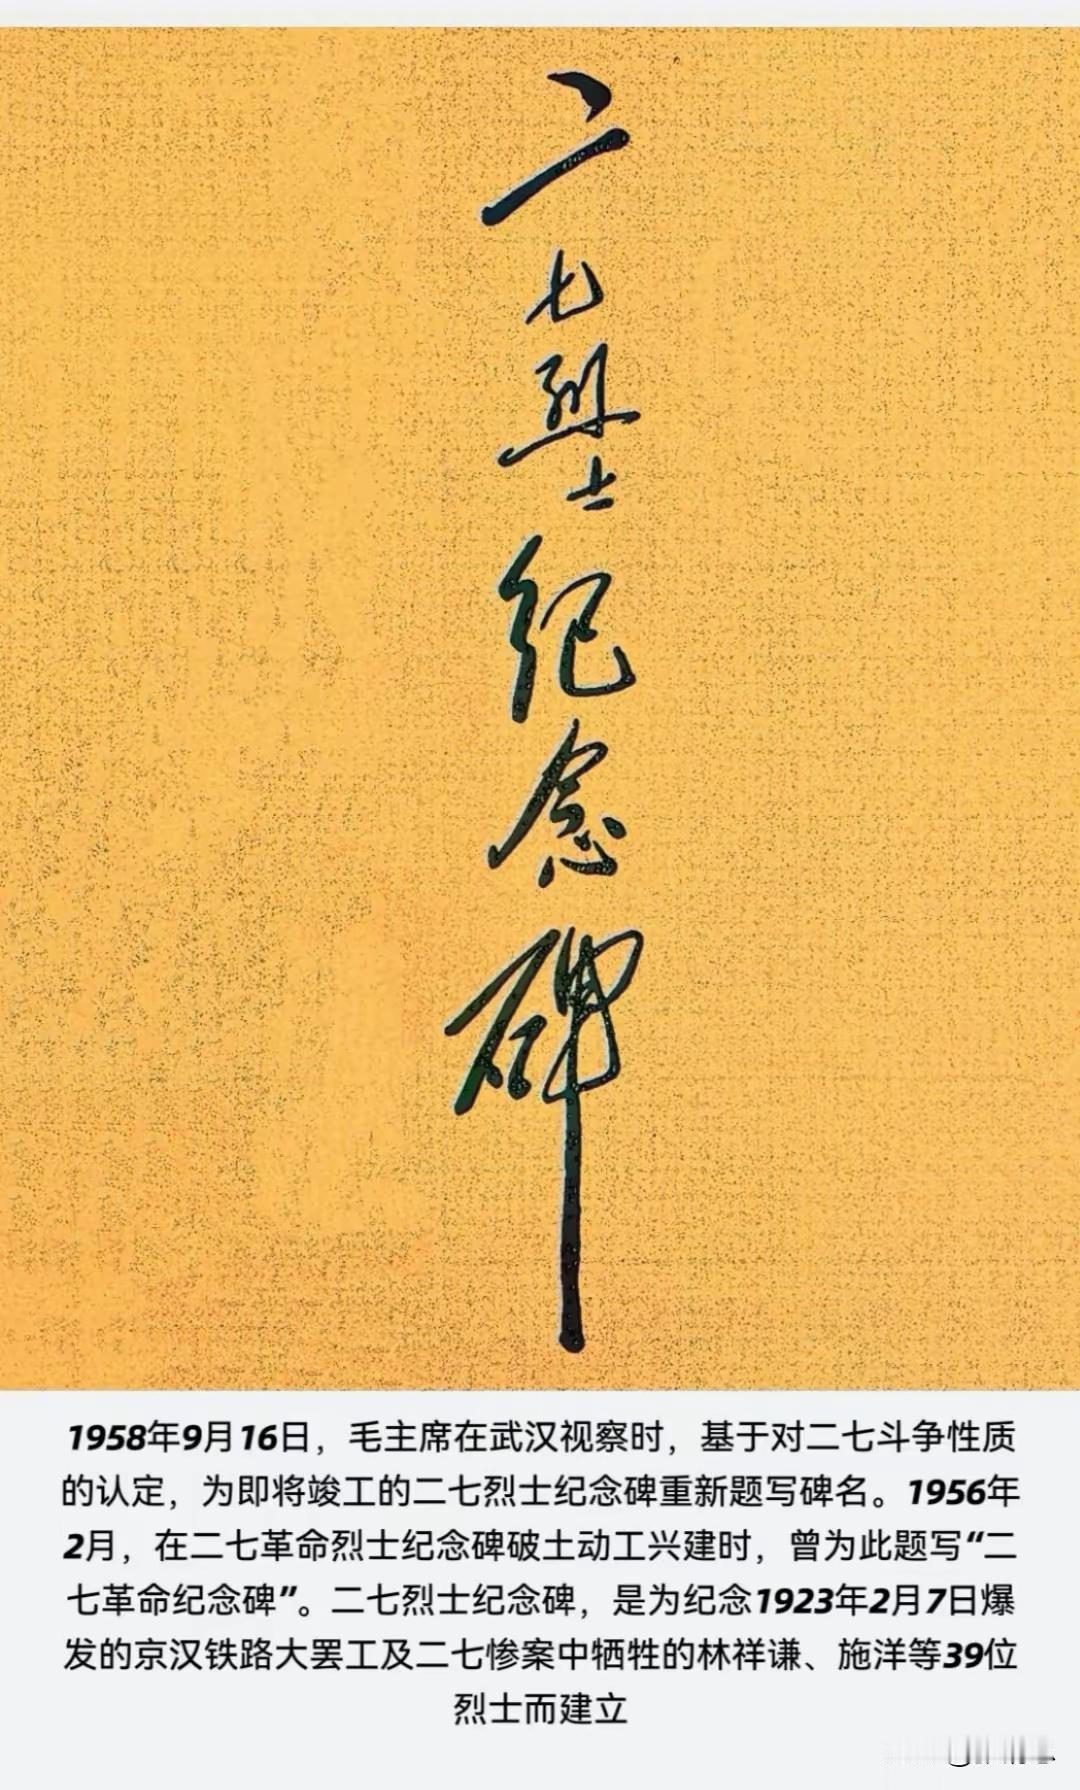 二七烈士纪念碑
1958年9月16日，毛主席在武汉视察时，基于对二七斗争性质
的认定，为即将竣工的二七烈士纪念碑重新题写碑名。1956年
2月，在二七革命烈士纪念碑破土动工兴建时，曾为此题写“二
七革命纪念碑”。二七烈士纪念碑，是为纪念1923年2月7日爆
发的京汉铁路大罢工及二七惨案中牺牲的林祥谦、施洋等39位
烈士而建立